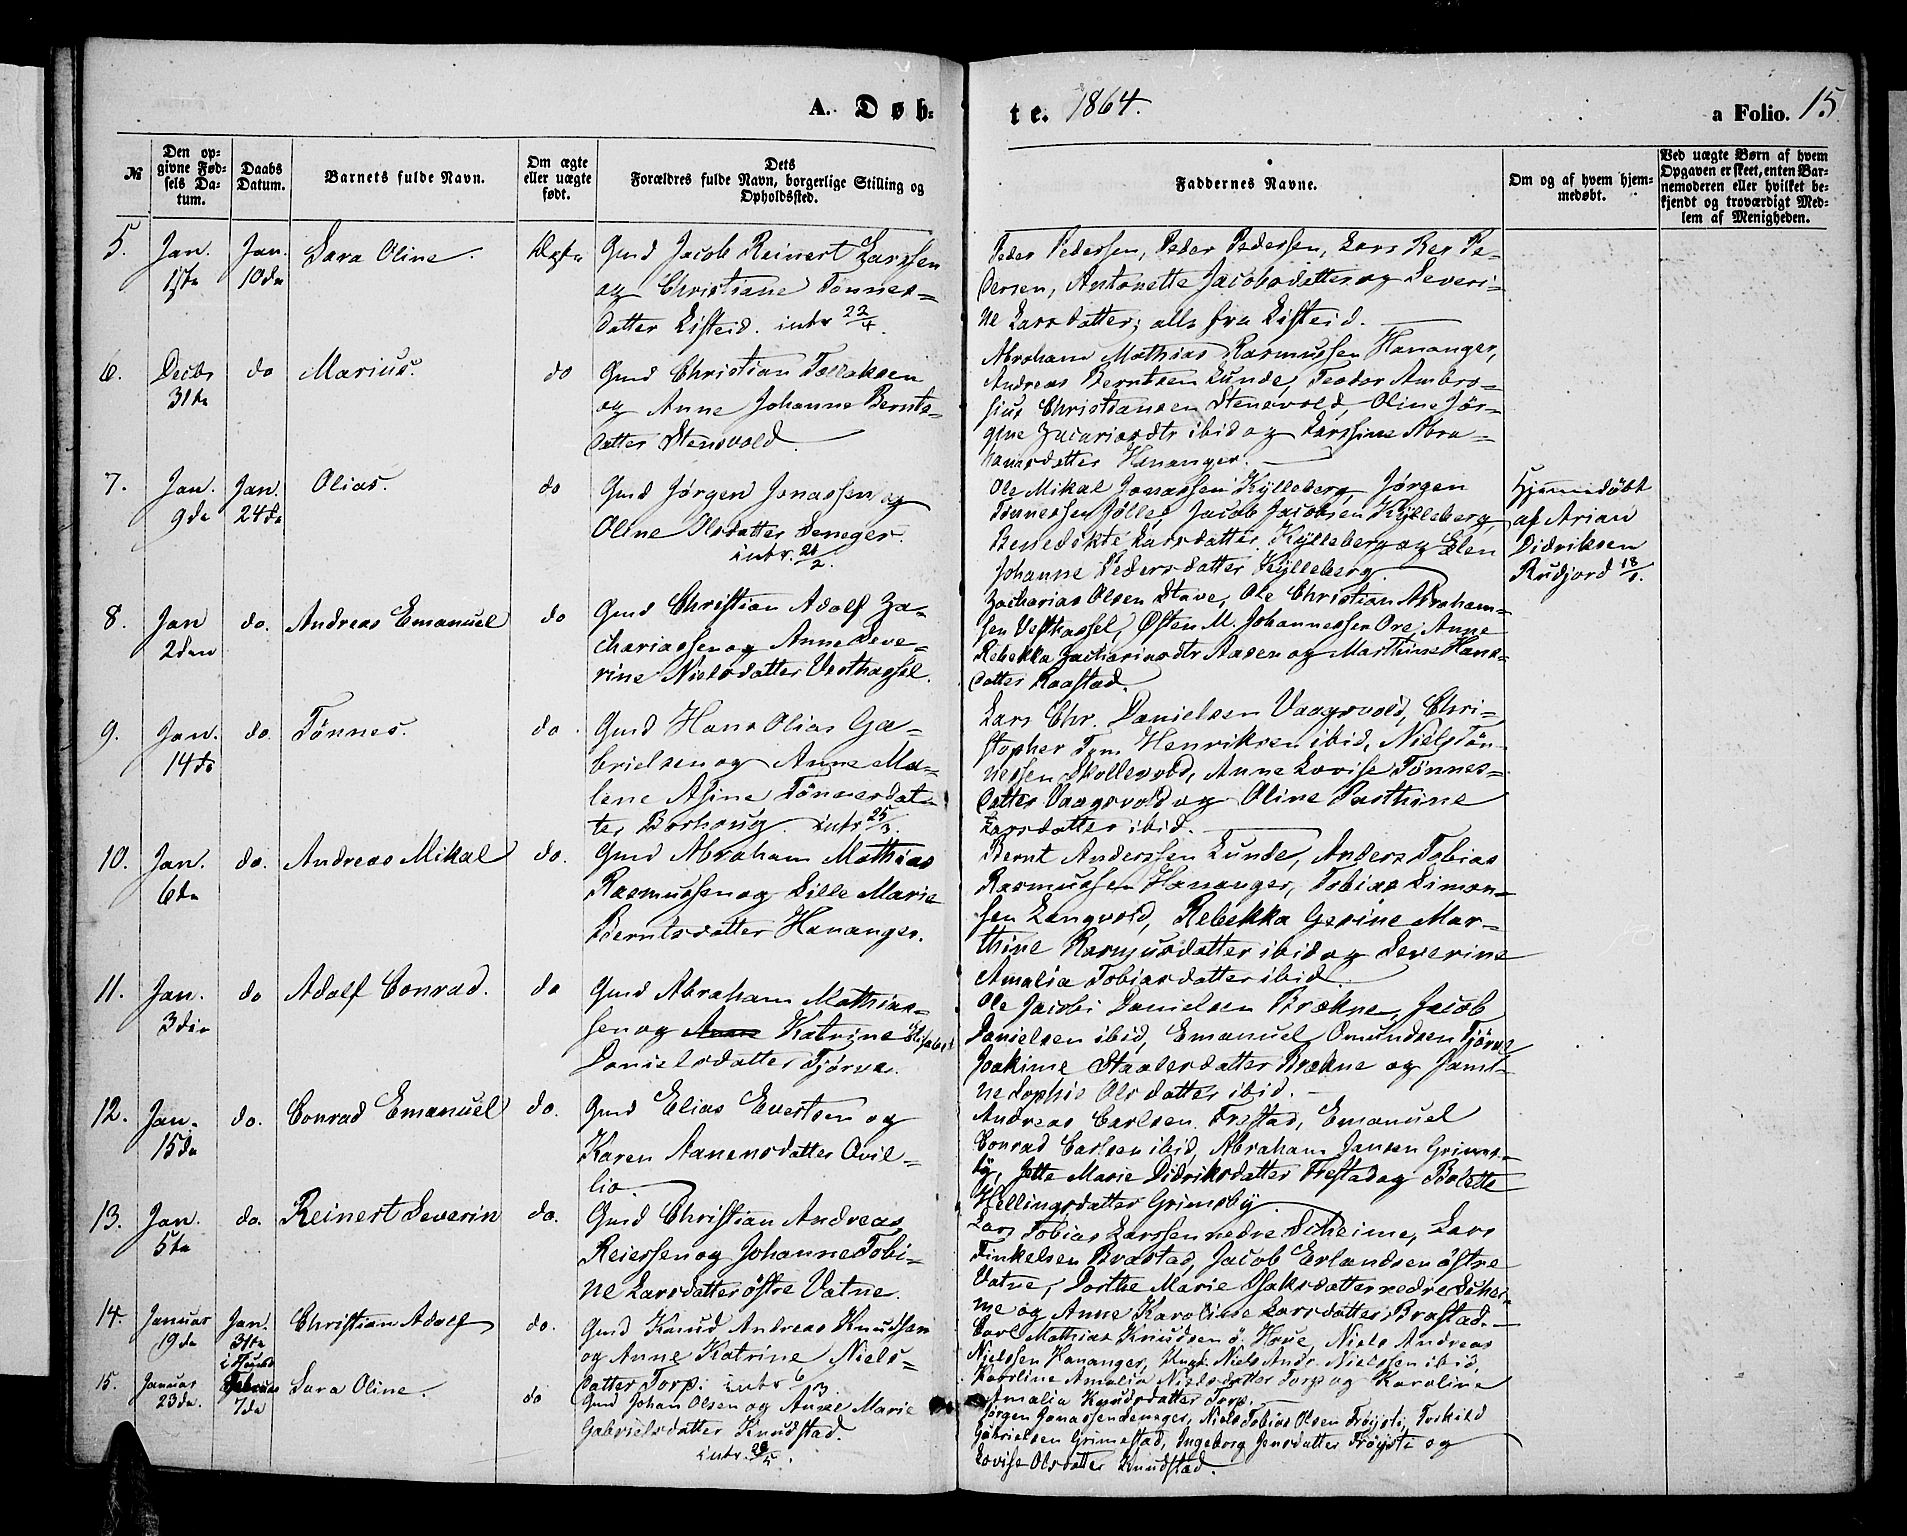 A. Døb=
te. 1864.
a Folio. 15
№
Den op-
givne Fød-
sels Da-
tum.
Daabs
Datum.
Barnets fulde Navn.
Om ægte
eller uægte
født.
Dets
Forældres fulde Navn, borgerlige Stilling og
Opholdssted.
Faddernes Navne.
Om og af hvem hjem-
medøbt.
Ved uægte Børn af hvem
Opgaven er skeet, enten Bar-
nemoderen eller hvilket be-
kjendt og troværdigt Med-
lem af Menigheden.
5. Jan. 1ste Jan. 10de Sara Oline. Ægte
Gmd Jacob Reinert Larssen
og Christiane Tønnes=
datter Listeid. intr 22/4.
Peder Pedersen, Peder Pedersen, Lars Pe-
dersen, Antonette Jacobsdatter og Severi-
ne Larsdatter; alle fra Listeid.
6. Decbr 31te do Marius. do
Gmd Christian Tollaksen
og Anne Johanne Bernts-
datter Stensvold.
Abraham Mathias Rasmussen Hananger,
Andreas Berntsen Lunde, Teodor Ambro-
sius Christiansen Stensvold, Oline Jør-
gine Zacariasdtr ibid og Larssine Abra-
hamsdatter Hananger.
7. Jan. 9de Jan. 24de Olias. do
Gmd Jørgen Jonassen og
Oline Olsdatter Deneger.
intr. 21/2.
Ole Mikal Jonassen Kylleberg, Jørgen
Tønnessen Jølle, Jacob Jacobsen Kylleberg,
Benedikte Larsdatter Kylleberg og Elen
Johanne Pedersdatter Kylleberg.
Hjemmedøbt
af Arian
Didriksen
Rudjord 18/1.
8. Jan 2den do. Andreas Emanuel do
Gmd Christian Adolf Za-
chariassen og Anne Seve-
rine Nielsdatter Vesthassel.
Zacharias Olsen Stave, Ole Christian Abraham-
sen Vesthassel, Østen M. Johannessen Ore, Anne
Rebekka Zachariasdtr Aasen og Marthine Hans-
datter Raastad.
9. Jan. 14de do. Tønnes. do.
Gmd Hans Olias Ga-
brielsen og Anne Ma-
lene Asine Tønnesdat-
ter Borhoug. intr 25/3.
Lars Chr. Danielsen Vaagsvold, Chri-
stopher Tøn. Henriksen ibid, Niels Tøn-
nessen Skollevold, Anne Lovise Tønnes-
datter Vaagsvold og Oline Pasthine
Larsdatter ibid.
10. Jan. 6de do. Andreas Mikal do.
Gmd Abraham Mathias
Rasmussen og Lille Marie
Berntsdatter Hananger.
Bernt Anderssen Lunde, Anders Tobias
Rasmussen Hananger, Tobias Simon-
sen Langvold, Rebekka Gesine Mar-
thine Rasmusdatter ibid og Severine
Amalia Tobiasdatter ibid.
11. Jan. 3die do Adolf Conrad. do
Gmd Abraham Mathias-
sen og Anne Katrine Elisabet
Danielsdatter Tjørve.
Ole Jacobi Danielsen Brækne, Jacob
Danielsen ibid, Emanuel Omundsen Tjørve
Joakime Staalesdatter Brækne og Jami-
ne Sophie Olsdatter ibid.
12. Jan. 15de do. Conrad Emanuel do.
Gmd Elias Evertsen og
Karen Aanensdatter Qvil-
lio.
Andreas Carlsen Frestad, Emanuel
Conrad Carlsen ibid, Abraham Jansen Grims-
by, Jette Marie Didriksdatter Frestad og Bolette
Hellingsdatter Grimsby.
13. Jan. 5te do. Reinert Severin do.
Gmd Christian Andreas
Reiersen og Johanne Tobi-
ne Larsdatter østre Vatne.
Lars Tobias Larssen nedre Skeime, Lars
Finkelsen Brastad, Jacob Erlandsen østre
Vatne, Dorthe Marie Isaksdatter nedre Skei-
me og Anne Karoline Larsdatter Brastad.
14. Januar 19de Jan. 31te Christian Adolf do.
Gmd Knud Andreas Knudsen
og Anne Katrine Niels-
datter Torp. intr 6/3.
Carl Mathias Knudsen ø. Haue, Niels Andreas
Nielssen Hananger, Niels Andr. Nielssen ibid,
Karoline Amalia Nielsdatter Torp og Karoline
Amalia Knudsdatter Torp.
15. Januar 23de. Februar 7de Sara Oline. do
Gmd Johan Olsen og Anne Marie
Gabrielsdatter Knudstad.
intr. 28/5.
Jørgen Jonassen Deneger, Niels Tobias Olsen Frøyste, Torkild
Gabrielsen Grimestad, Ingeborg Jensdatter Frøyste og
Lovise Olsdatter Knudstad.